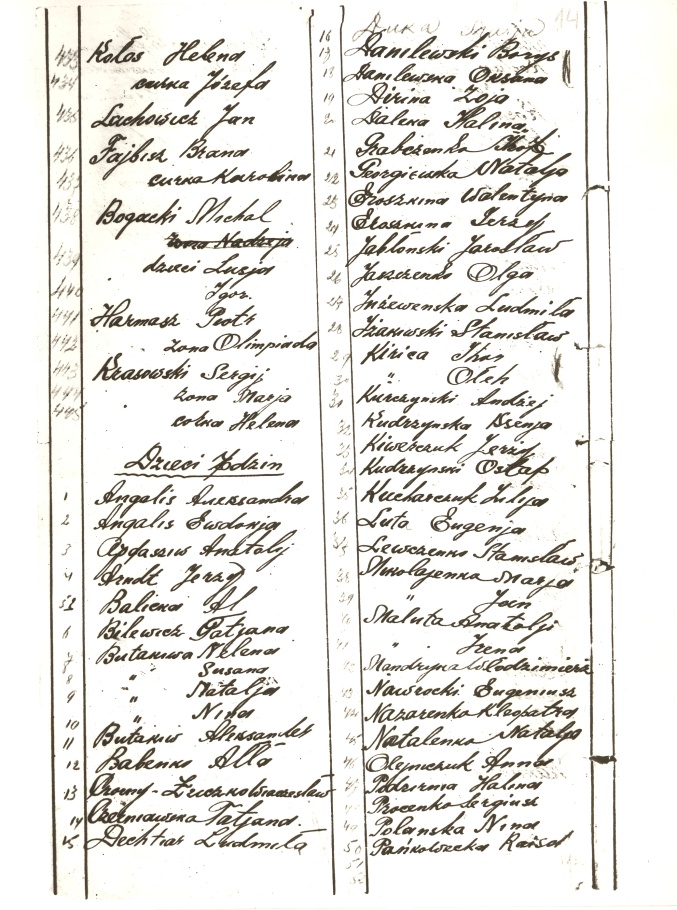 433 Kołos Helena
434 curka Józefa
435 Lachowicz Jan
436 Fajbisz Brana
437 curka Karolina
438 Bogacki Michał
żona Nadzieja
439 dzieci Lusja
440 Igor.
441 Harmasz Piotr
442 żona Olimpiada
443 Krasowski Sergij
444 żona Marja
445 córka Helena
Dzieci Rodzin
1 Angalis Aleksandra
2 Angalis Ewdonja
3 Anatolij
4 Arndt Jerzy
5 Balicka Al
6 Bilewicz Tatjana
7 Butakowa Helena
8 " Susana
9 " Natalja
10 " Nina
11 Butakow Aleksander
12 Babenko Ałła
13
14 Czerniawska Tatjana.
15 Dechtiar Ludmiła
14
16
17 Danilewski Borys
18 Danilewska Oksana
19 Dirina Zoja
20 Daleka Halina
21 Grabczenko
22 Georgiewska Natalja
23 Eroszkina Walentyna
24 Eroszkina Jerzy
25 Jabłonski Jarosław
26 Jaszczenko Olga
27 Inżewenska Ludmiła
28 Stanisław
29 Kirica Ihor
30 " Oleh
31 Kurczynski Andrzej
32 Kudrzynska Ksenja
33 Kiwerczuk Jerzy
34 Kudrzynski Ostap
35 Kucharczuk Lilija
36 Luta Eugenja
37 Lewczenko Stanisław
38 Mikołajenko Marja
39 " Jan
40 Maluta Anatolji
" Irena
42 Mandryka Włodzimierz
43 Nawrocki Eugeniusz
44 Nazarenko Kleopatra
45 Natalenko Natalja
46 Olejniczuk Anna
47 Halina
48 Procenko Sergiusz
49 Polanska Nina
50 Raisa
51